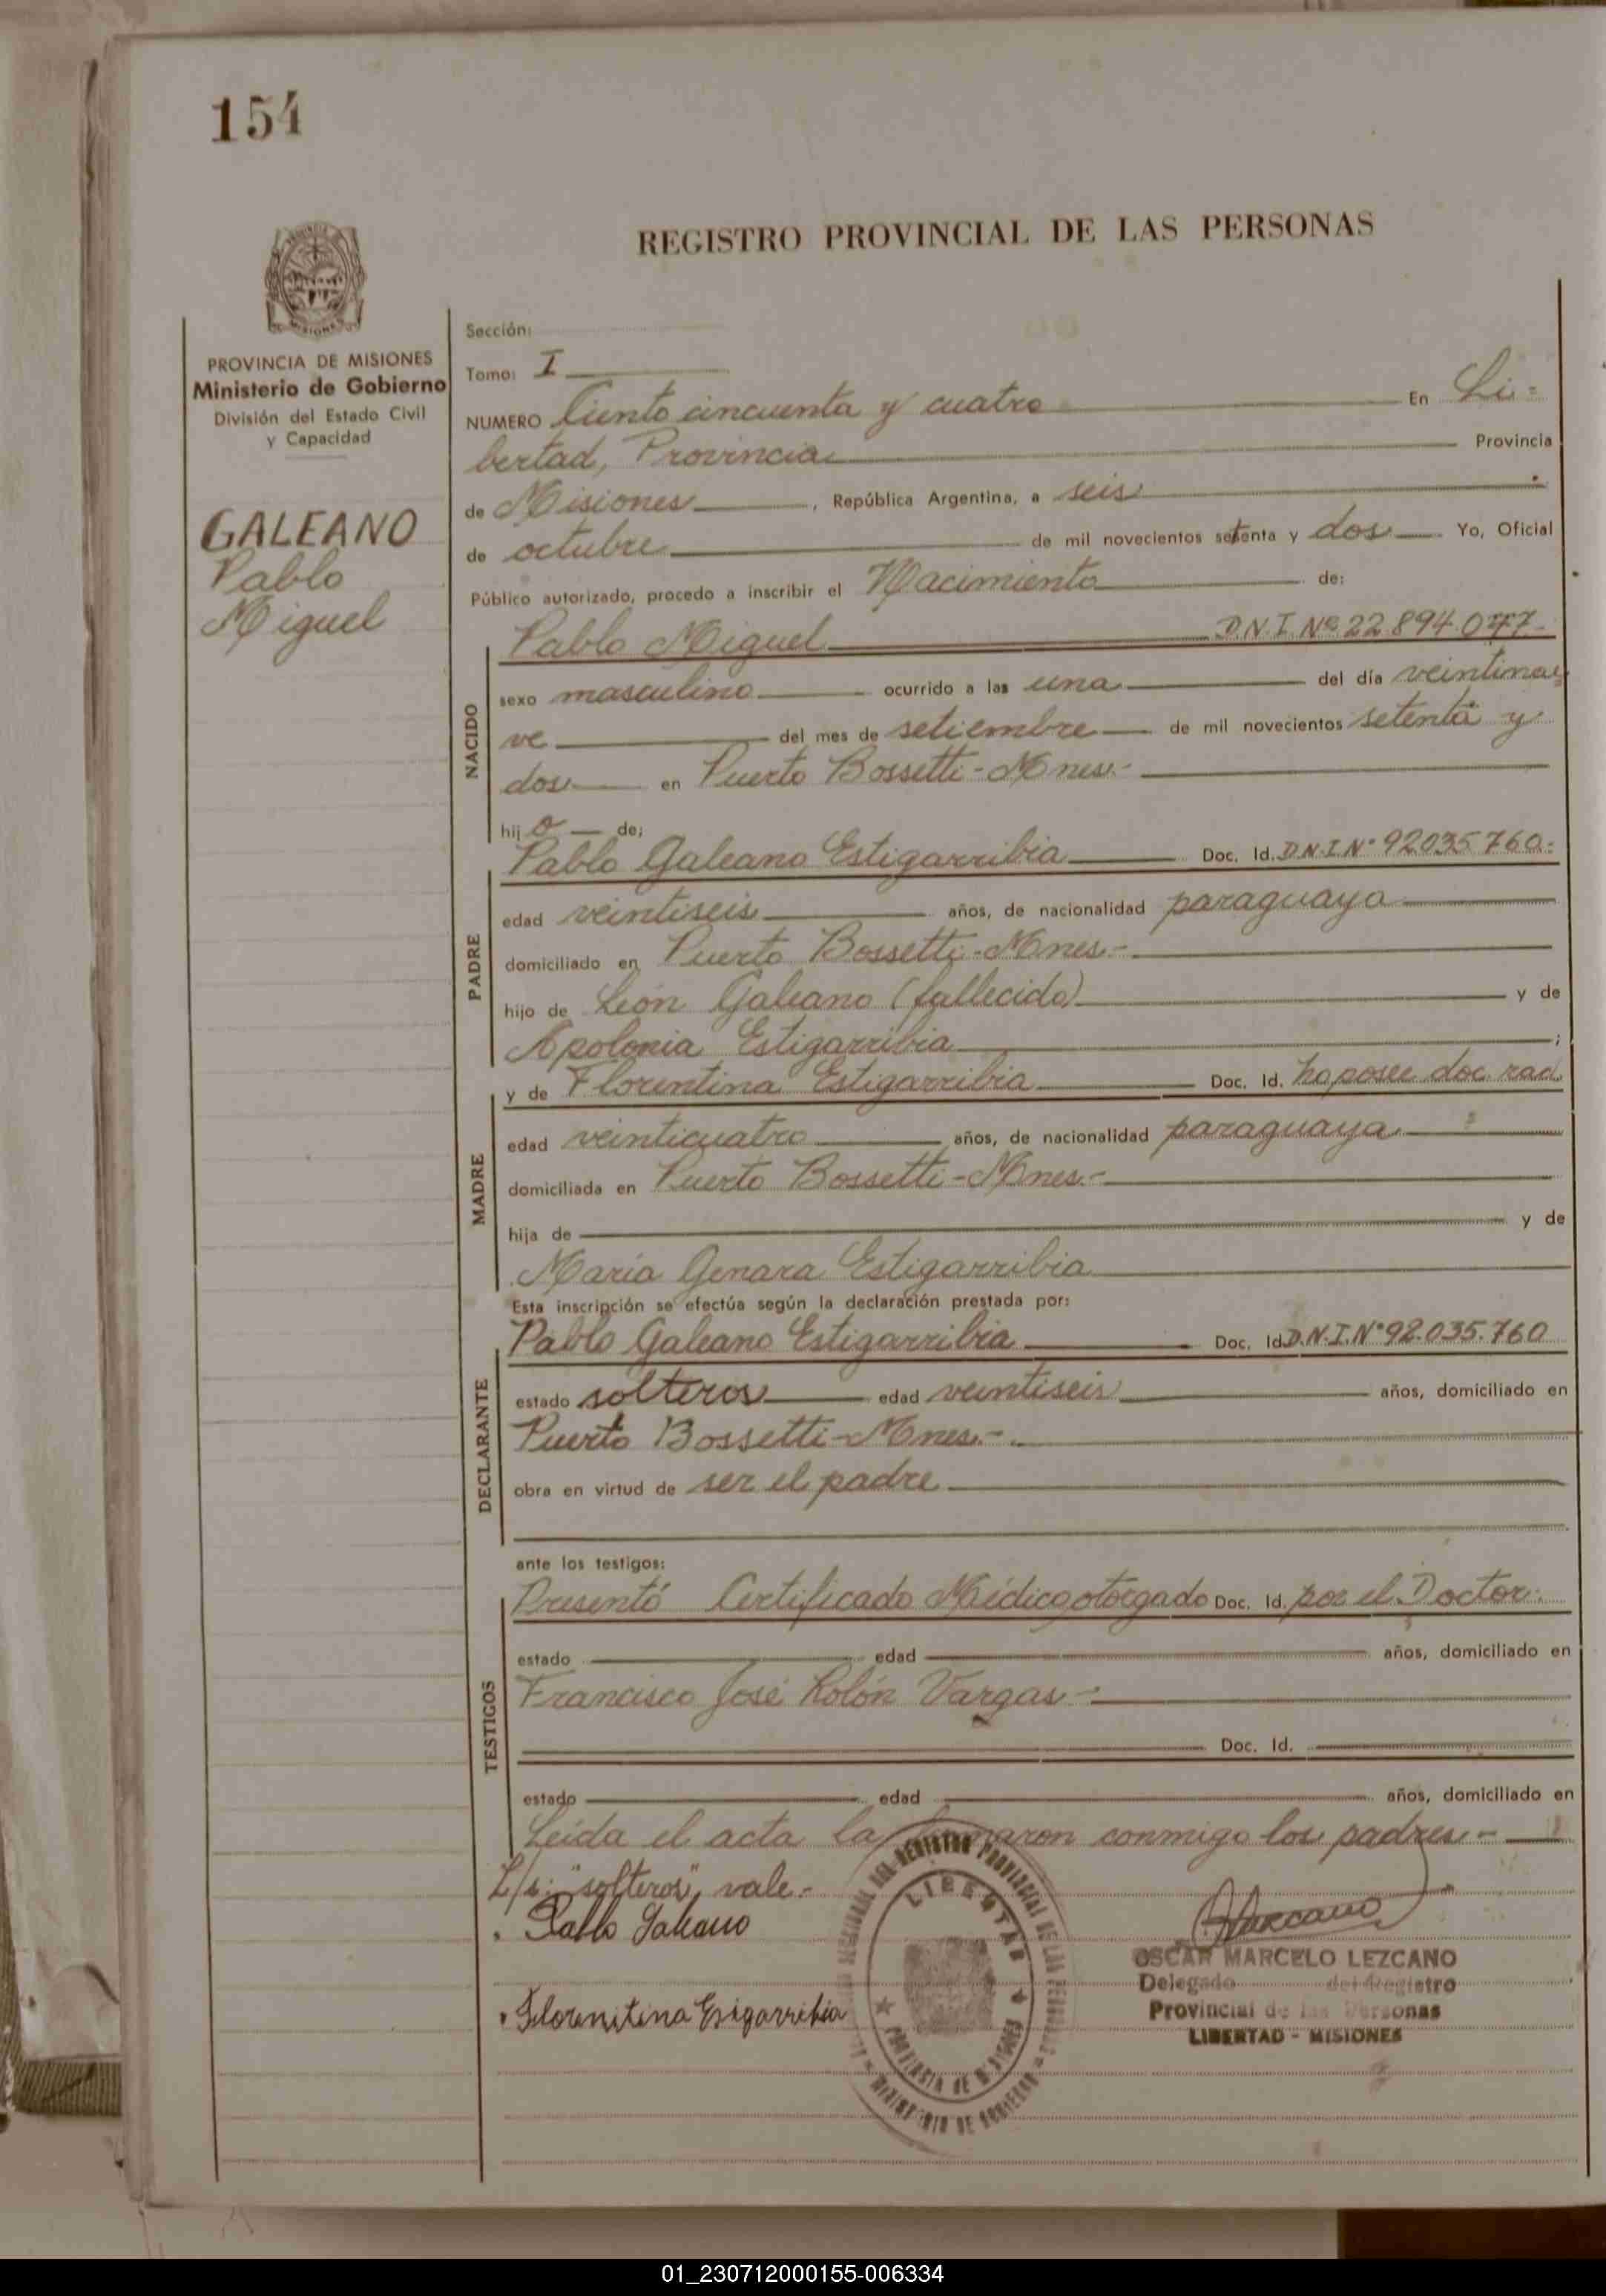 154
REGISTRO PROVINCIAL DE LAS PERSONAS
PROVINCIA DE MISIONES
Ministerio de Gobierno
División del Estado Civil
y Capacidad
GALEANO
Pablo
Miguel
Sección:
Tomo: I
NUMERO Ciento cincuenta y cuatro En Li=
bertad, Provincia Provincia
de Misiones, República Argentina, a seis
de octubre de mil novecientos setenta y dos Yo, Oficial
Público autorizado, procedo a inscribir el Nacimiento de:
NACIDO
Pablo Miguel D.N.I. Nº 22.894.077-
sexo masculino ocurrido a las una del día veintinue
ve del mes de setiembre de mil novecientos setenta y
dos en Puerto Bossetti-Mnes.-
hijo de:
PADRE
Pablo Galeano Estigarribia Doc. Id. D.N.I. Nº 92035760.-
edad veintiseis años, de nacionalidad paraguaya
domiciliado en Puerto Bossetti-Mnes.-
hijo de León Galeano (fallecido) y de
Apolonia Estigarribia;
MADRE
y de Florentina Estigarribia Doc. Id. No posee doc. rad.
edad veinticuatro años, de nacionalidad paraguaya
domiciliada en Puerto Bossetti-Mnes.-
hija de y de
María Genara Estigarribia
Esta inscripción se efectúa según la declaración prestada por:
DECLARANTE
Pablo Galeano Estigarribia Doc. Id. D.N.I. Nº 92.035.760
estado solteros edad veintiseis años, domiciliado en
Puerto Bossetti-Mnes.-
obra en virtud de ser el padre
ante los testigos:
TESTIGOS
Presentó Certificado Médico otorgado Doc. Id. por el Doctor:
estado edad años, domiciliado en
Francisco José Rolón Vargas-
Doc. Id.
estado edad años, domiciliado en
Leída el acta la firmaron conmigo los padres-
L/s: "solteros", vale.-
Pablo Galeano
Florenitina Esigarribia
LIBERTAD
PROVINCIA DE MISIONES
MINISTERIO DE GOBIERNO
OSCAR MARCELO LEZCANO
Delegado del Registro
Provincial de las Personas
LIBERTAD - MISIONES
01_230712000155-006334